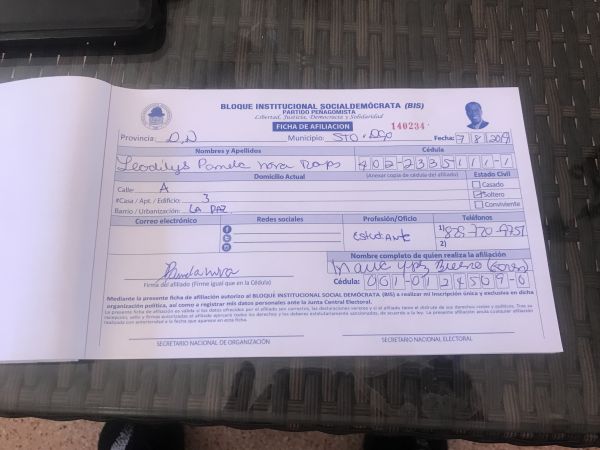 BLOQUE INSTITUCIONAL SOCIALDEMÓCRATA (BIS)
PARTIDO PEÑAGOMISTA
Libertad, Justicia, Democracia y Solidaridad
FICHA DE AFILIACIÓN 140234
Provincia: D.N Municipio: STO. DGO Fecha: 7/8/2019
Nombres y Apellidos Cédula
Pamela 402-2335111-1
Domicilio Actual (Anexar copia de cédula del afiliado) Estado Civil
Calle: A Casado
#Casa / Apt. / Edificio: 3 Soltero
Barrio / Urbanización: LA PAZ Conviviente
Correo electrónico Redes sociales Profesión/Oficio Teléfonos
Estudiante 1) 829-720-
2)
Nombre completo de quien realiza la afiliación
Pamela nova
Firma del afiliado (Firme igual que en la Cédula) Cédula: 001-0124509-0
Mediante la presente ficha de afiliación autorizo al BLOQUE INSTITUCIONAL SOCIAL DEMÓCRATA (BIS) a realizar mi inscripción única y exclusiva en dicha
organización política, así como a registrar mis datos personales ante la Junta Central Electoral.
SECRETARIO NACIONAL DE ORGANIZACIÓN SECRETARIO NACIONAL ELECTORAL